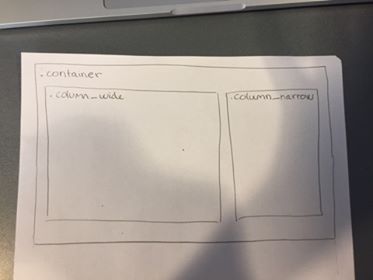 .container
.column_wide
.column_narrow